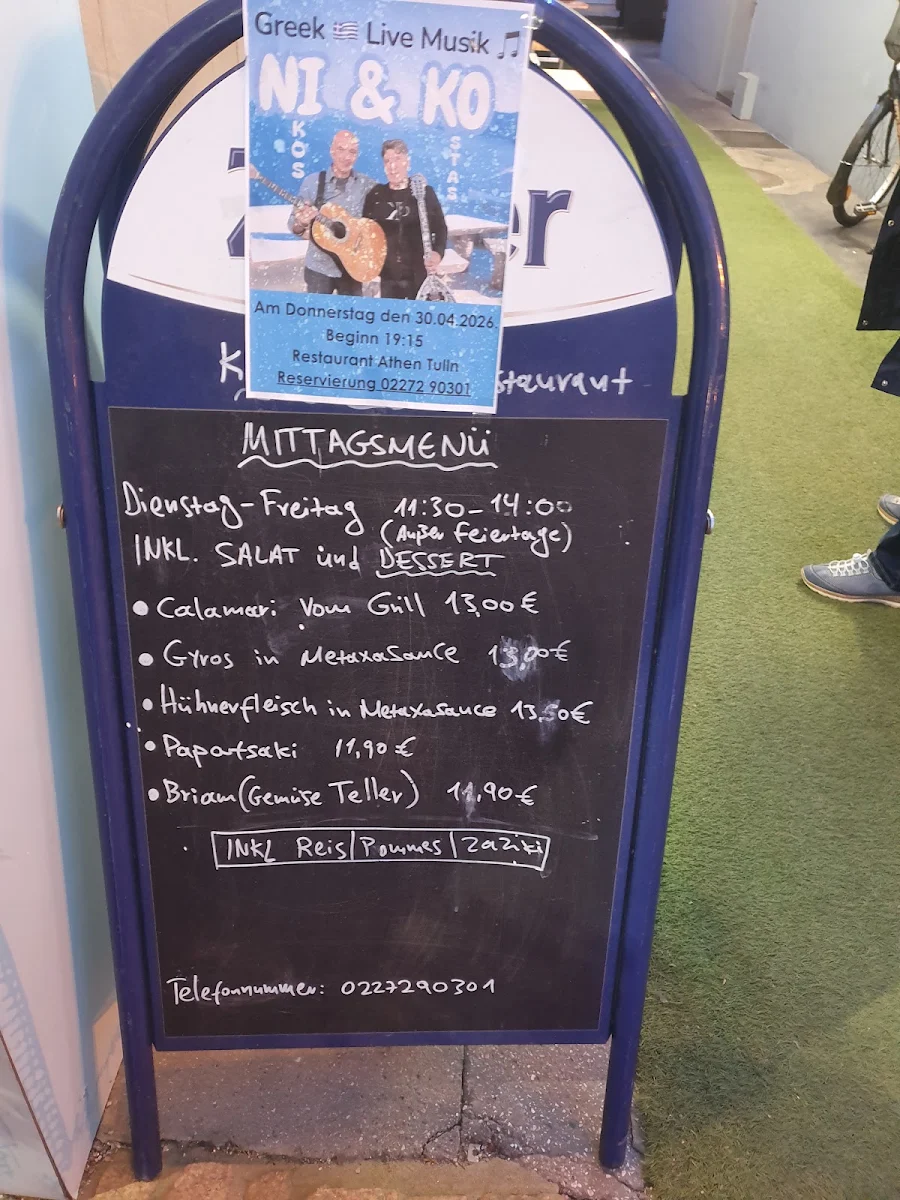 Greek 🇬🇷 Live Musik 🎵
NI & KO
KOS
STAS
er
Am Donnerstag den 30.04.2026
Beginn 19:15
Restaurant Athen Tulln
Reservierung 02272 90301
MITTAGSMENÜ
Dienstag-Freitag 11:30-14:00
(Außer Feiertage)
INKL. SALAT und DESSERT
• Calamari Vom Grill 13,00€
• Gyros in MetaxaSauce 13,00€
• Hühnerfleisch in Metaxasauce 13.50€
• Papoutsaki 11,90€
• Briam (Gemüse Teller) 11,90€
INKL Reis|Pommes|Zaziki
Telefonnummer: 0227290301